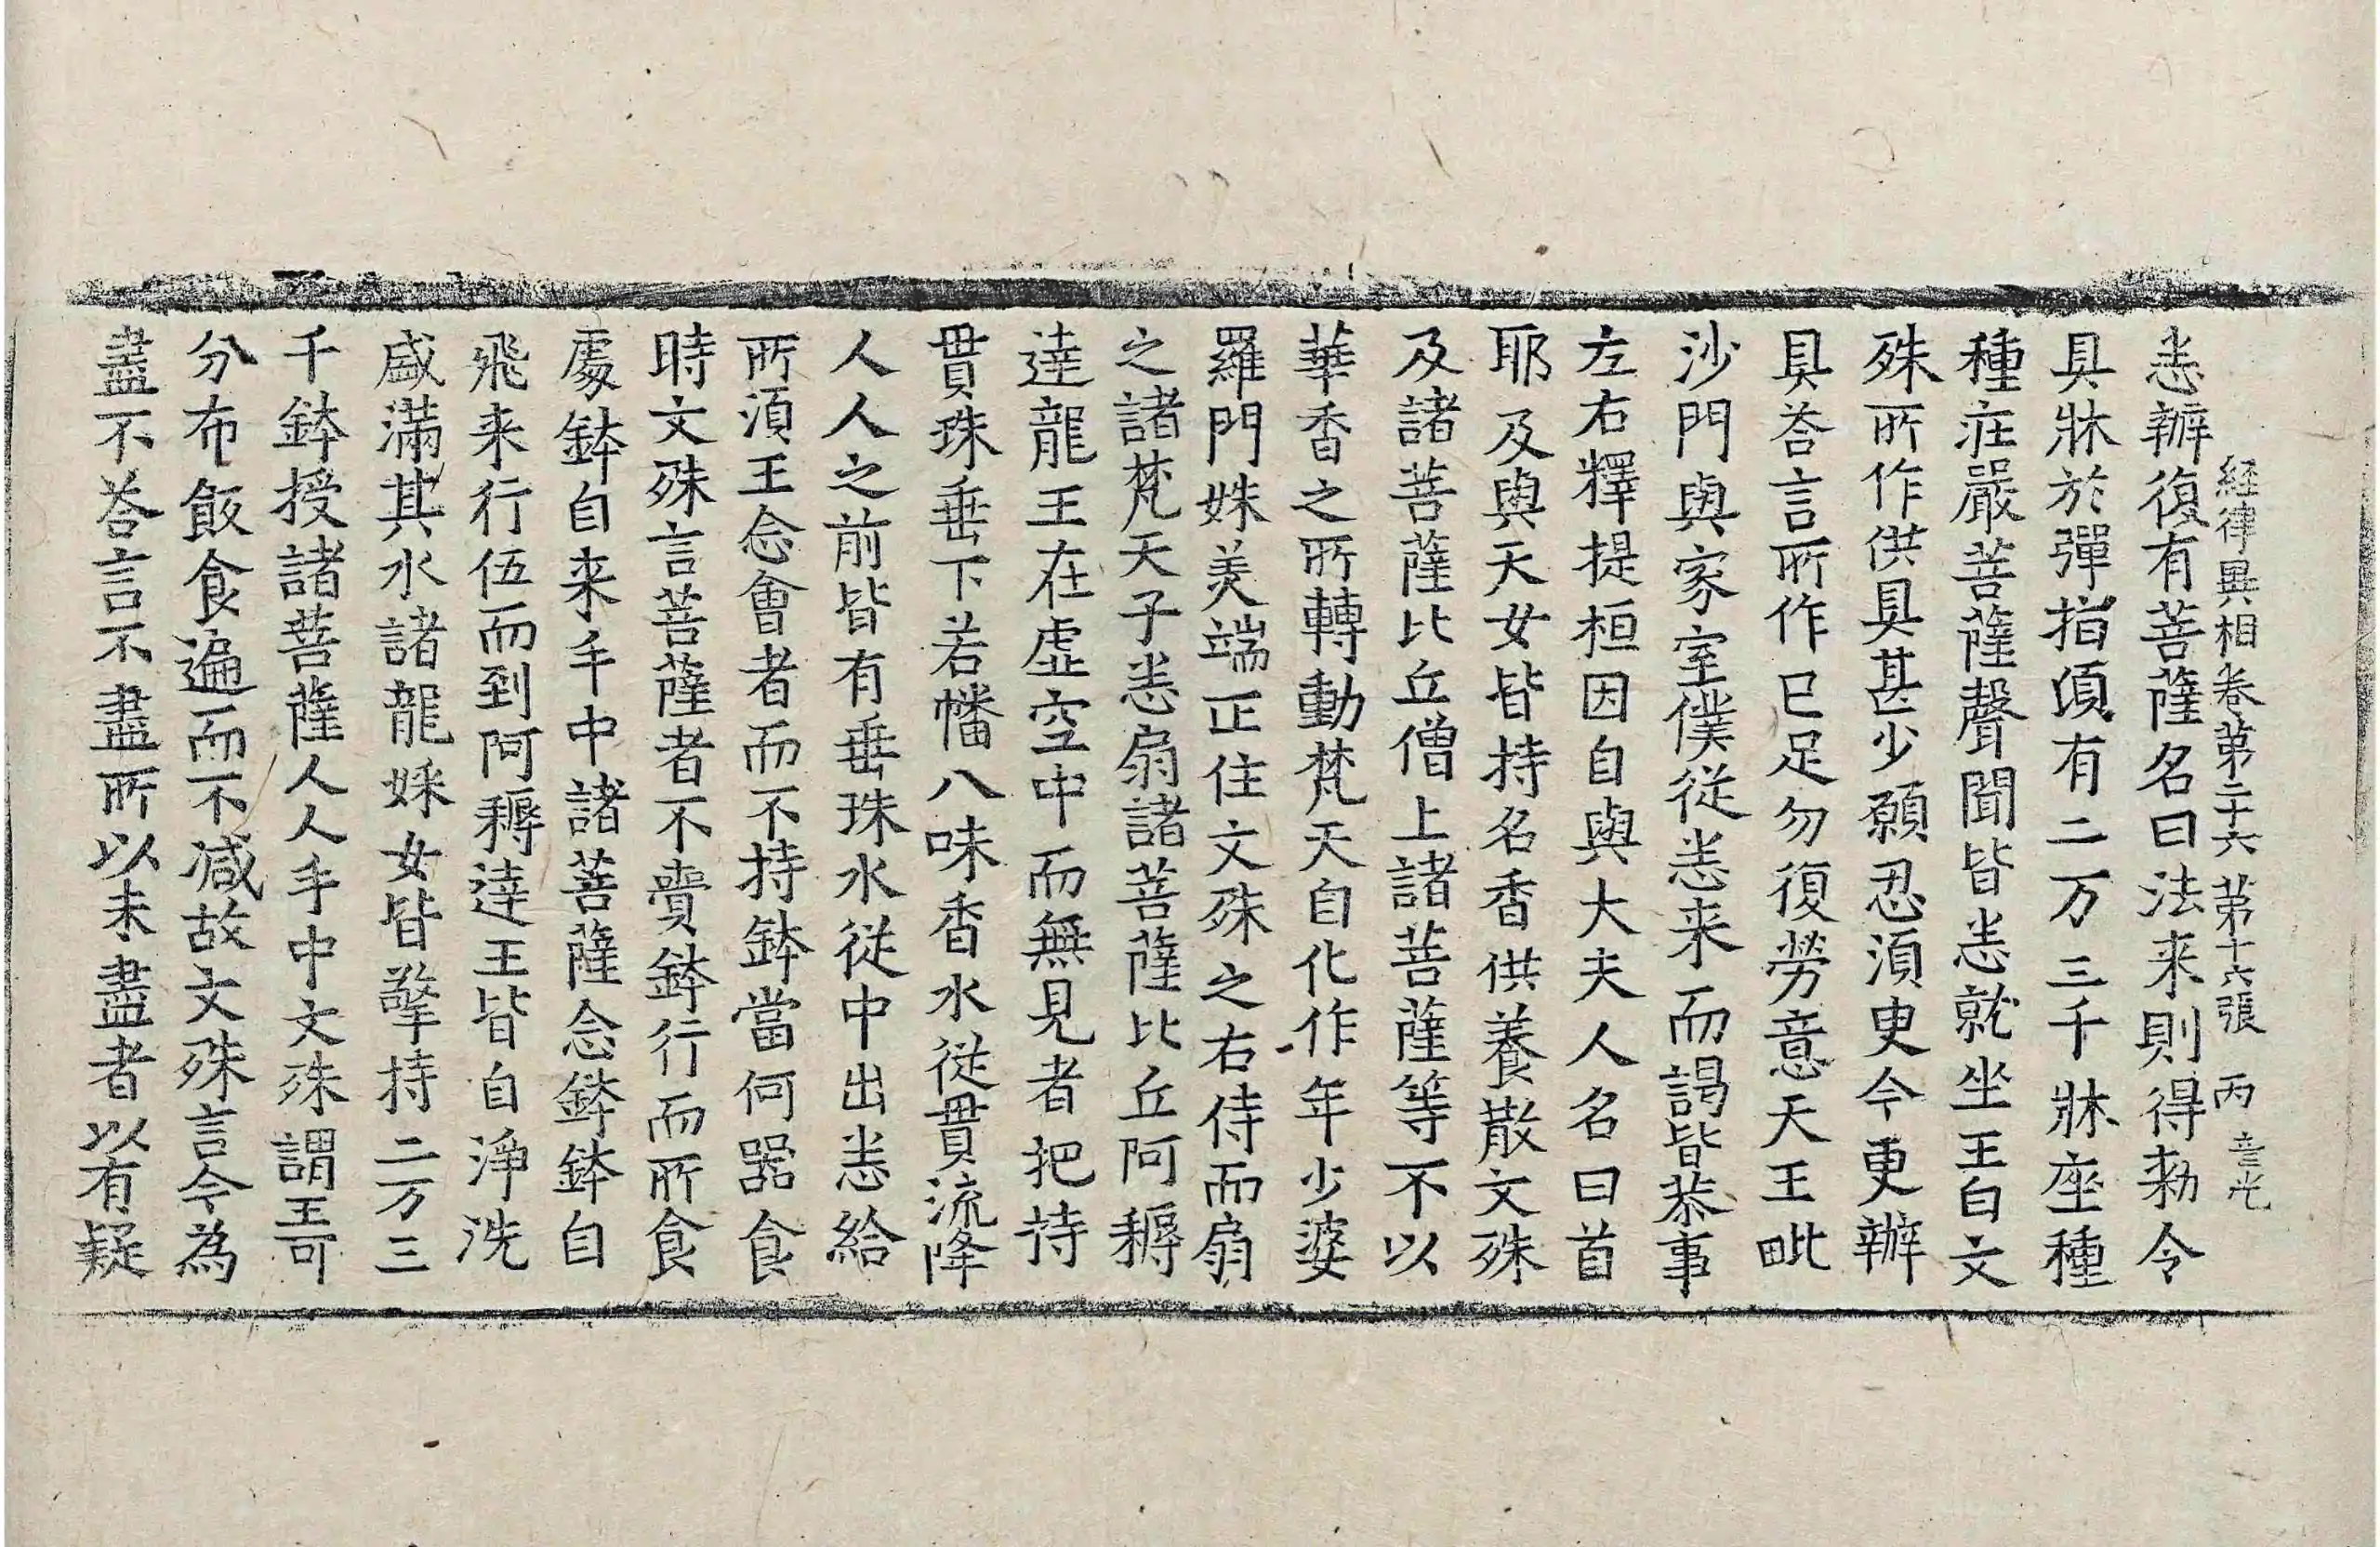 経律異相卷第二十六 第十六張 丙
悉辦復有菩薩名曰法来則得勑令
具牀於弹指頃有二万三千牀座種
種莊嚴菩薩聲聞皆悉就坐王白文
殊所作供具甚少願忍須臾今更辦
具荅言所作已足勿復勞意天王毗
沙門與家室僕從悉来而謁皆恭事
左右釋提桓因自與大夫人名曰首
耶及與天女皆持名香供養散文殊
及諸菩薩比丘僧上諸菩薩等不以
華香之所轉動梵天自化作年少婆
羅門姝美端正住文殊之右侍而扇
之諸梵天子悉扇諸菩薩比丘阿耨
達龍王在虛空中而無見者把持
貫珠垂下若幡八味香水從貫流降
人人之前皆有垂珠水從中出悉給
所須王念會者而不持鉢當何器食
時文殊言菩薩者不賷鉢行而所食
處鉢自来手中諸菩薩念鉢鉢自
飛来行伍而到阿耨達王皆自淨洗
盛滿其水諸龍婇女皆擎持二万三
千鉢授諸菩薩人人手中文殊謂王可
分布飯食遍而不减故文殊言令為
盡不荅言不盡所以未盡者以有疑